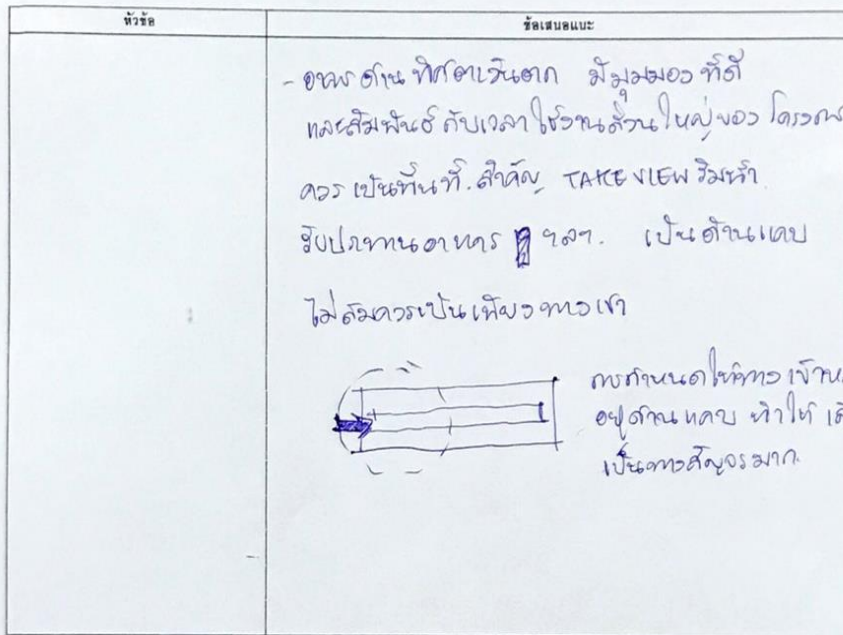 หัวข้อ
ข้อเสนอแนะ
- อาคารด้านทิศตะวันตก มีมุมมองที่ดี
และสัมพันธ์กับเวลาใช้งานส่วนใหญ่ของโครงการ
ควรเป็นพื้นที่สำคัญ TAKE VIEW ริมน้ำ
รับประทานอาหาร ฯลฯ. เป็นด้านแคบ
ไม่สมควรเป็นเพียงทางเข้า
การกำหนดให้ทางเข้า
อยู่ด้านแคบ ทำให้
เป็นทางสัญจรมาก